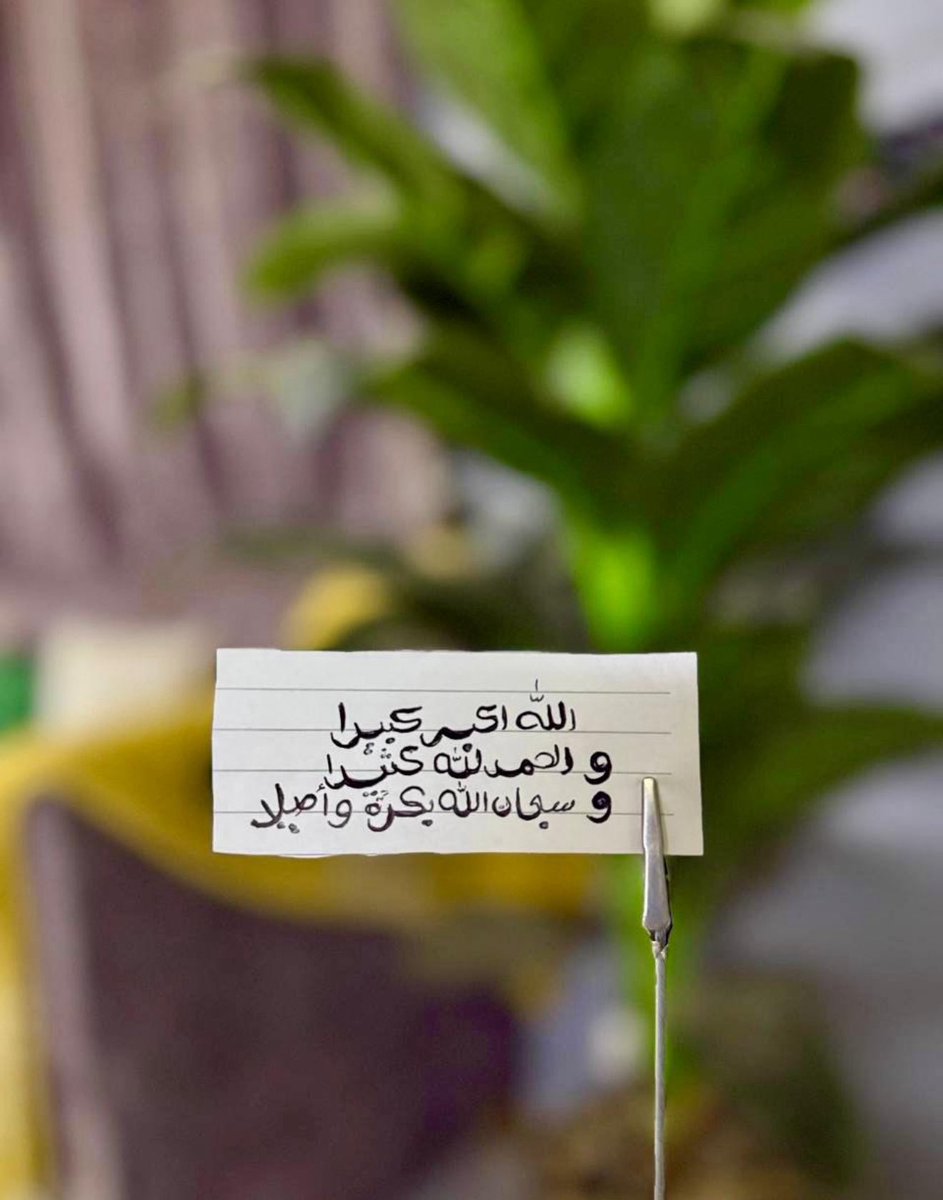 الله اكبر كبيرا
و الحمد لله كثيرا
و سبحان الله بكرة وأصيلا